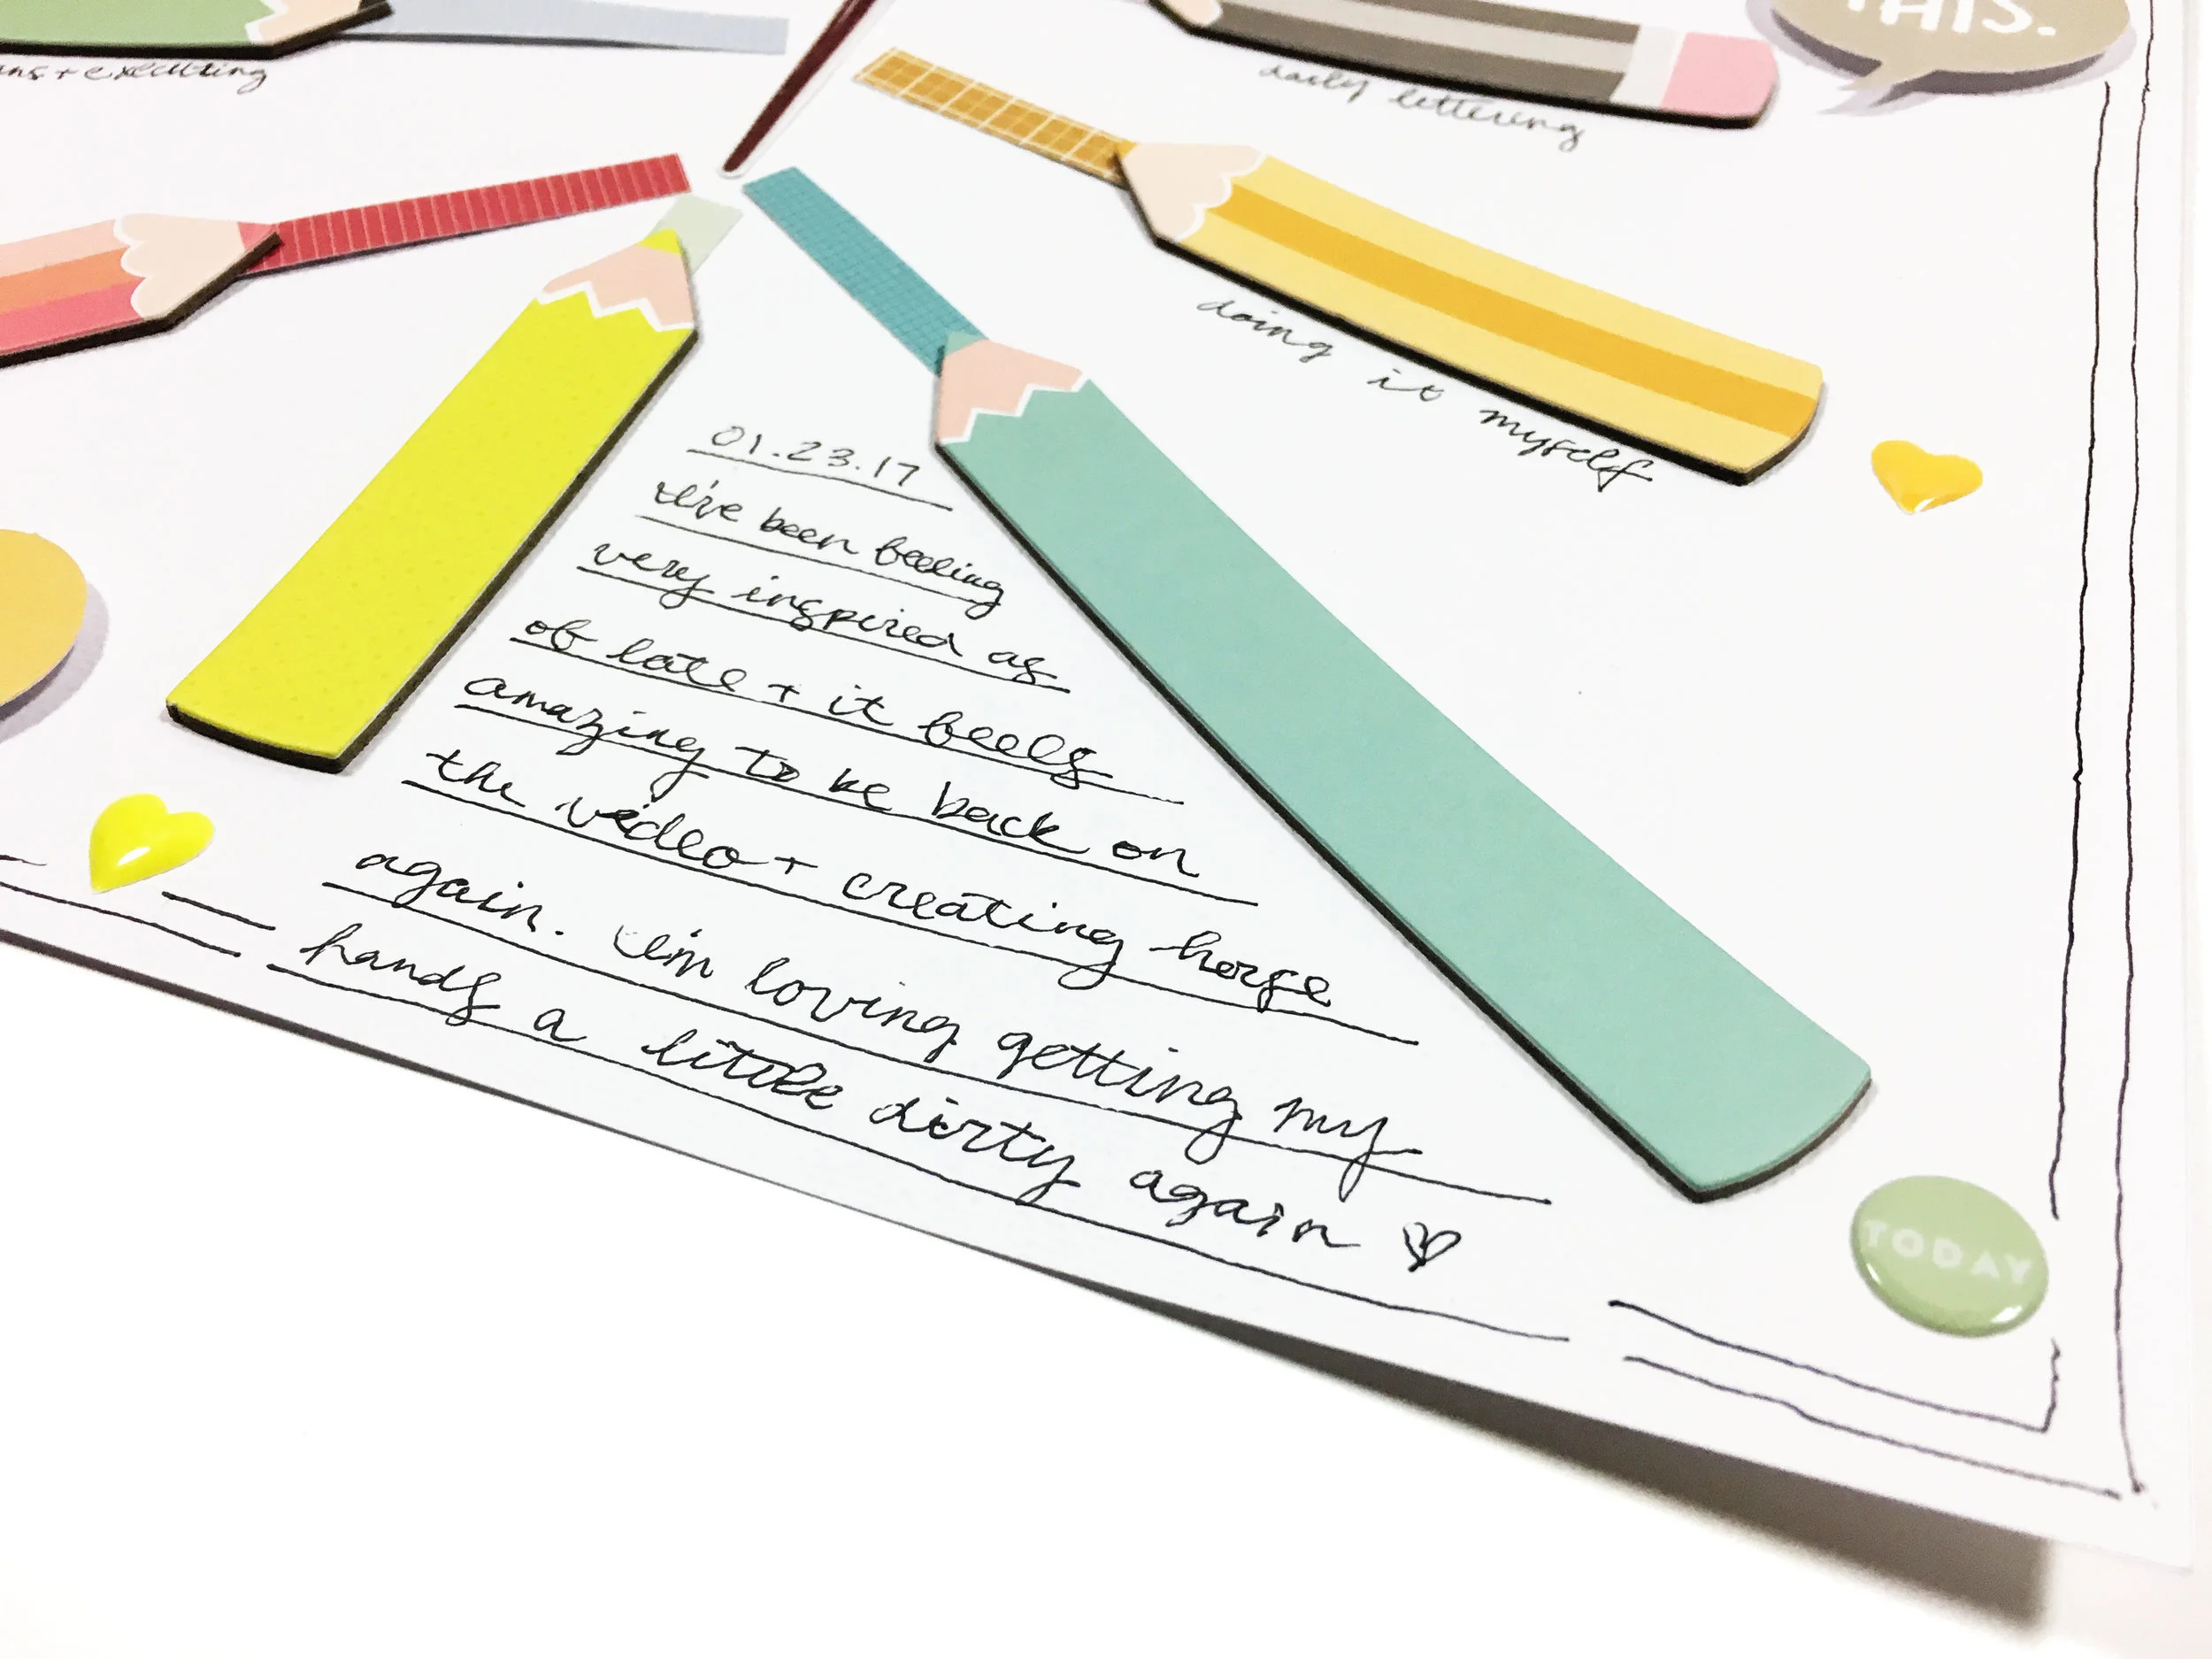 THIS.
+ executing
daily lettering
doing it myself
01.23.17
I've been feeling
very inspired as
of late + it feels
amazing to be back on
the video + creating horse
again. I'm loving getting my
hands a little dirty again ♡
TODAY